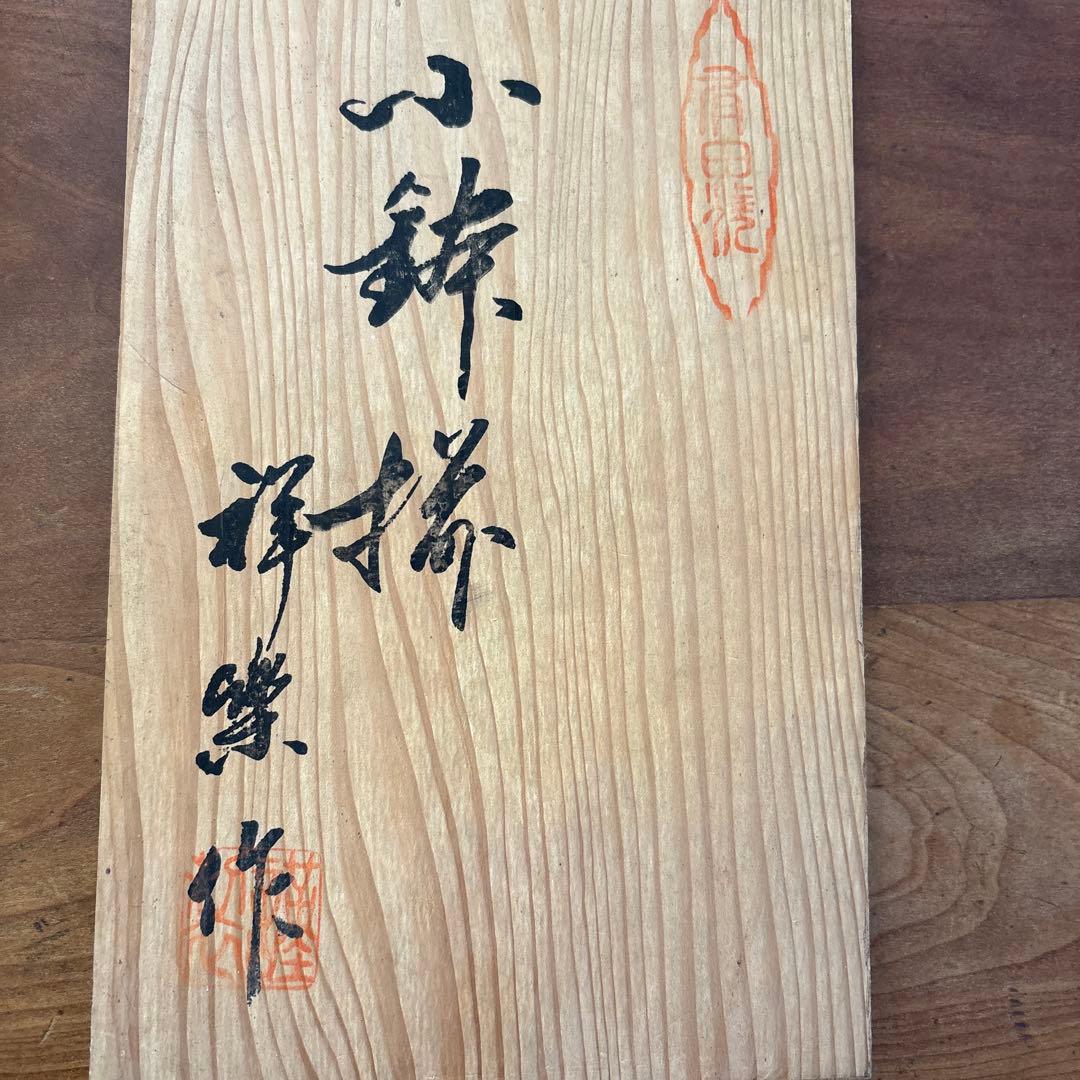 有田焼
小鉢揃
祥楽作